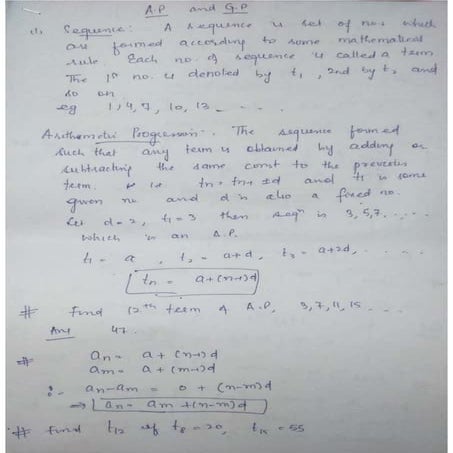 A.P and G.P
(1) Sequence: A sequence is set of nos which
are formed according to some mathematical
rule. Each no. of sequence is called a term
The 1st no. is denoted by t₁, 2nd by t₂ and
so on
eg 1, 4, 7, 10, 13 - - - -
Arithemetic Progression. The sequence formed
such that any term is obtained by adding or
subtracting the same const to the previous
term. ie tn = tn-1 ± d and t₁ is some
given no and d is also a fixed no.
Let d=2, t₁=3 then seqⁿ is 3, 5, 7. . . .
which is an A.P.
t₁ = a, t₂ = a+d, t₃ = a+2d, . . . .
tn = a+(n-1)d
# Find 12th term of A.P, 3, 7, 11, 15 . . .
Ans 47.
# an = a + (n-1)d
am = a + (m-1)d
an-am = 0 + (n-m)d
⇒ an = am + (n-m)d
# Find t12 if t8 = 20, = 55